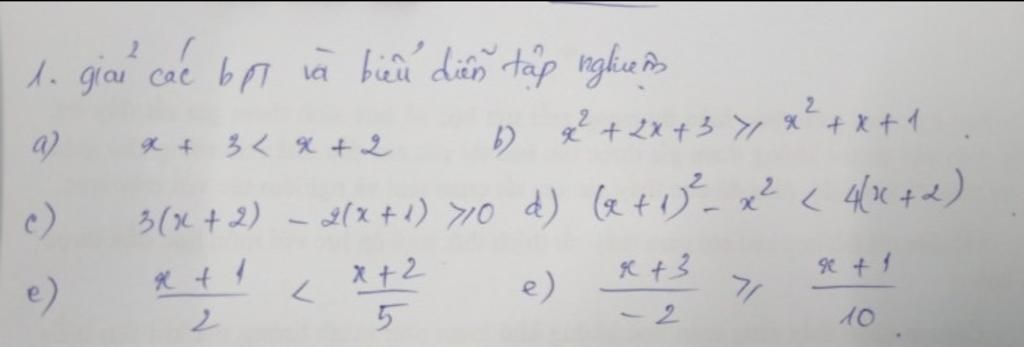 1. giải các bpt và biểu diễn tập nghiệm
a) x + 3 < x + 2 b) x² + 2x + 3 ⩾ x² + x + 1 .
c) 3(x + 2) - 2(x + 1) ⩾ 0 d) (x + 1)² - x² < 4(x + 2)
e) (x + 1)/2 < (x + 2)/5 e) (x + 3)/-2 ⩾ (x + 1)/10 .